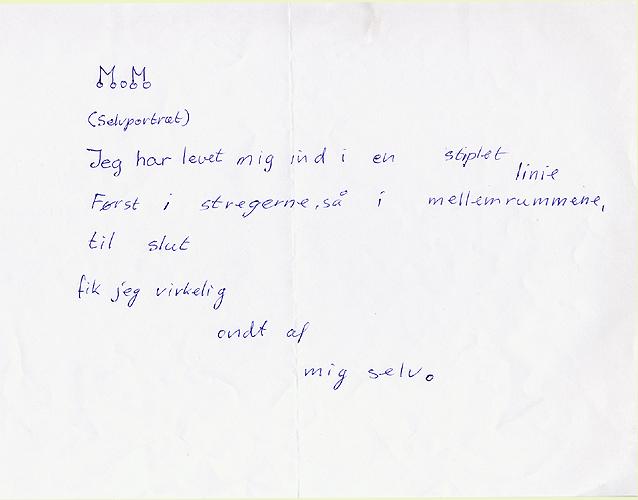 M.M
(Selvportræt)
Jeg har levet mig ind i en stiplet linie
Først i stregerne, så i mellemrummene,
til slut
fik jeg virkelig
ondt af
mig selv.